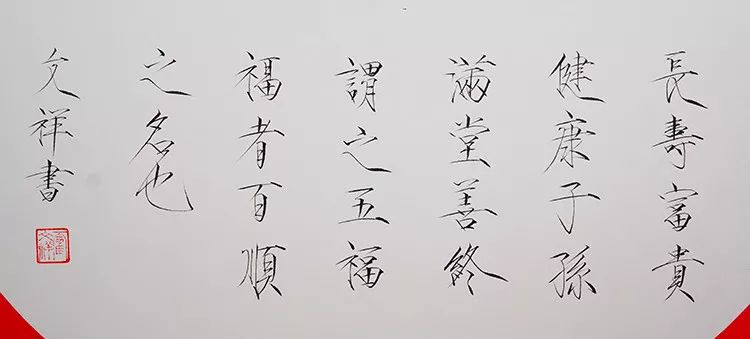 長壽富貴
健康子孫
滿堂善終
謂之五福
福者百順
之名也
文祥書